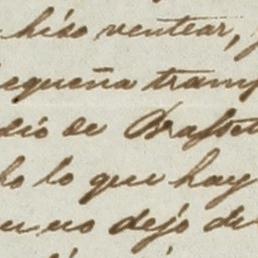 hiso ventear,
equeña tramp
dio de Brafset
lo lo que hay
no dejó de